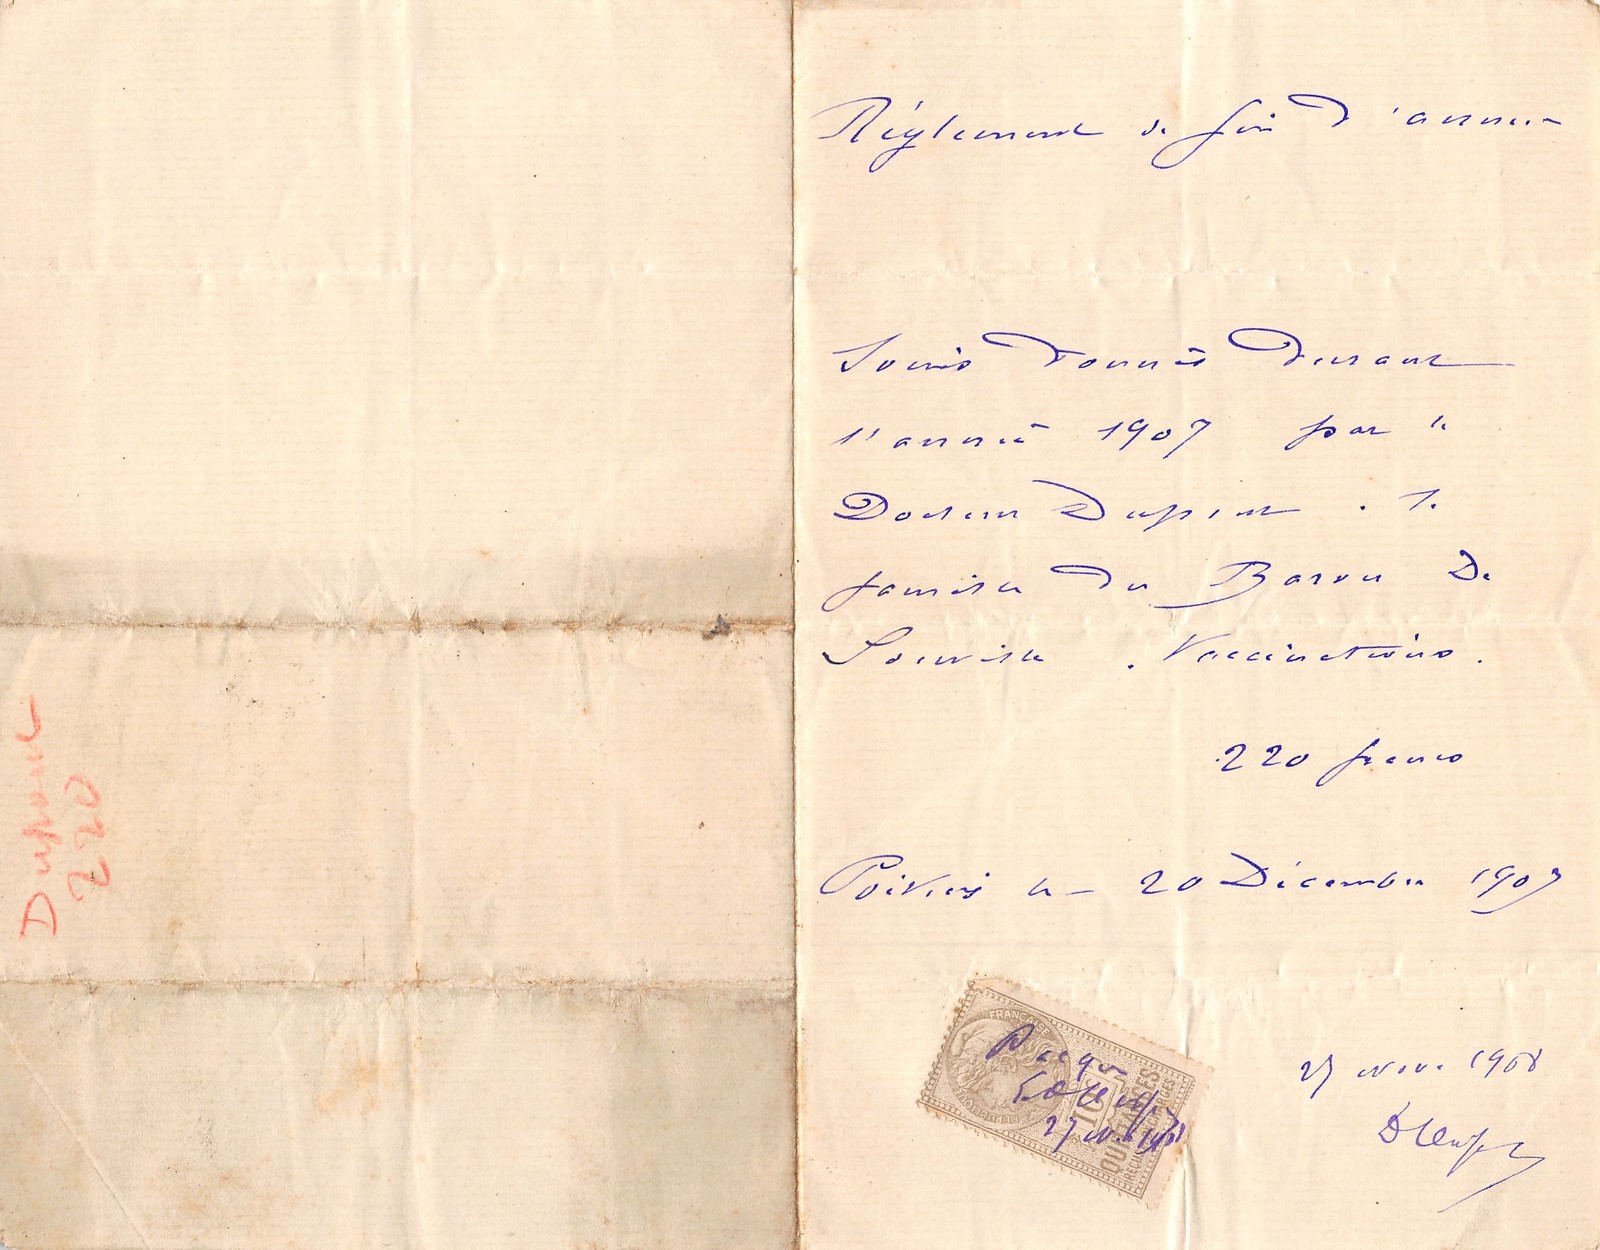 Règlement de fin d'année
Soins donnés durant
l'année 1907 par le
Docteur Dupont . la
famille du Baron De
. Vaccinations.
220 francs
Poitiers le - 20 Décembre 1907
27 nov. 1908
FRANÇAISE
10c
QUITTANCES
REÇUS DÉCHARGES
27 nov. 1908
Dupont
220